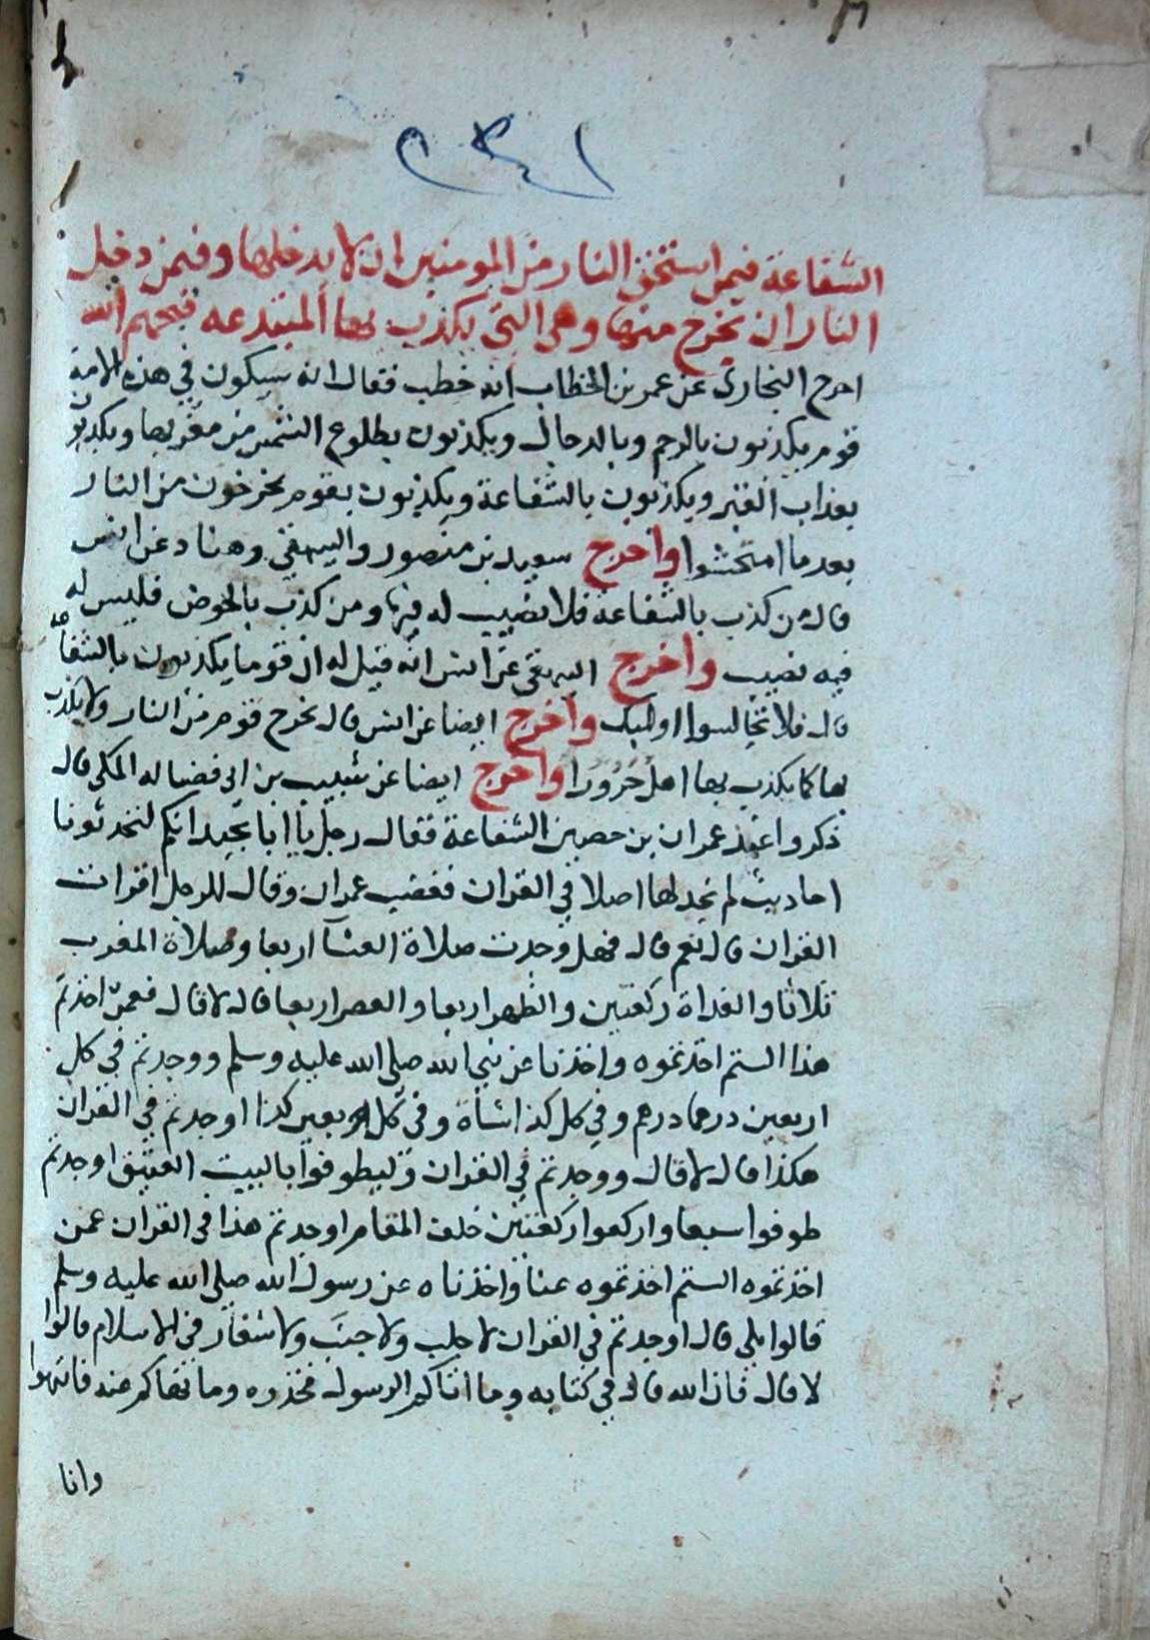 ٢٤١
الشفاعة فيمن استحق النار من المومنين ان لا يدخلها وفيمن دخل
النار ان يخرج منها وهي التي يكذب بها المبتدعه قبحهم الله
اخرج البخارى عن عمر بن الخطاب انه خطب فقال انه سيكون في هذه الامة
قوم يكذبون بالرجم وبالدجال ويكذبون بطلوع الشمس من مغربها ويكذبون
بعذاب القبر ويكذبون بالشفاعة ويكذبون بقوم يخرخون من النار
بعد ما امتحشوا واخرج سعيد بن منصور والبيهقي وهناد عن انس
قال من كذب بالشفاعة فلا نصيب له فيها ومن كذب بالحوض فليس له
فيه نصيب واخرج البيهقي عن انس انه قيل له ان قوما يكذبون بالشفاعة
قال فلا تجالسوا اوليك واخرج ايضا عن انس قال يخرج قوم من النار ولا يكذب
بها كما يكذب بها اهل حرورا واخرج ايضا عن شبيب بن ابي فضاله المكي قال
ذكروا عند عمران بن حصين الشفاعة فقال رجل يا ابا نجيد انكم لتحدثونا
احاديث لم نجد لها اصلا في القران فغضب عمران وقال للرجل اقرات
القران قال نعم قال فهل وجدت صلاة العشآ اربعا وصلاة المغرب
ثلاثا والغداة ركعتين والظهر اربعا والعصر اربعا قال لا قال فعمن اخذتم
هذا الستم اخذتموه واخذنا عن نبي الله صلى الله عليه وسلم ووجدتم في كل
اربعين درهما درهم وفي كل كذا شاة وفي كل بعير كذا اوجدتم في القران
هكذا قال لا قال ووجدتم في القران وليطوفوا بالبيت العتيق اوجدتم
طوفوا سبعا واركعوا ركعتين خلف المقام اوجدتم هذا في القران عمن
اخذتموه الستم اخذتموه عنا واخذناه عن رسول الله صلى الله عليه وسلم
قالوا بلى قال اوجدتم في القران لا جلب ولا جنب ولا شغار في الاسلام قالوا
لا قال فان الله قال في كتابه وما اتاكم الرسول فخذوه وما نهاكم عنه فانتهوا
وانا